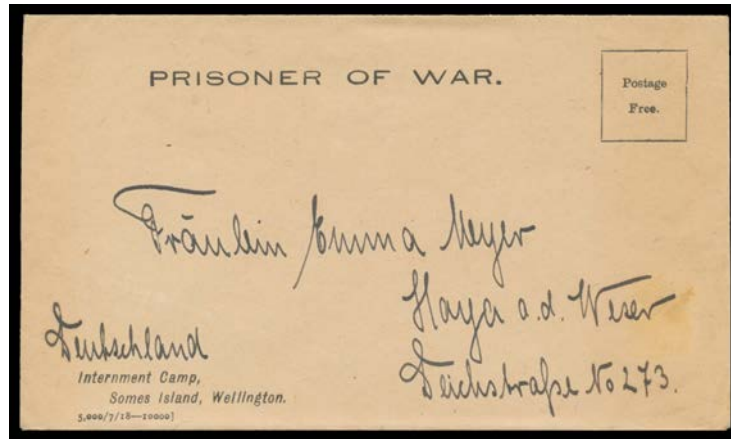 PRISONER OF WAR.
Postage
Free.
Fräulein Emma Meyer
Hoya a.d. Weser
Deichstraße No 273.
Deutschland
Internment Camp,
Somes Island, Wellington.
5,000/7/18—10000]